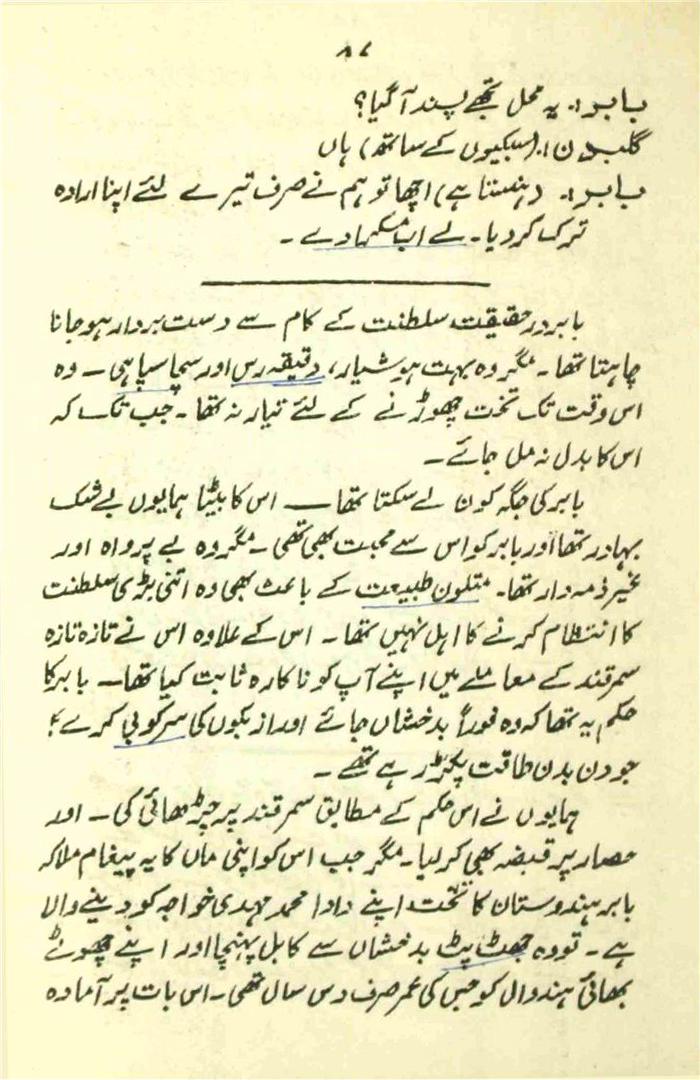 ۸۷
بابر:۔ یہ محل تجھے پسند آگیا؟
گلبدن:۔ (سبکیوں کے ساتھ) ہاں
بابر:۔ (ہنستا ہے) اچھا تو ہم نے صرف تیرے لئے اپنا ارادہ
ترک کردیا۔ لے اب مسکہادے ۔
بابر در حقیقت سلطنت کے کام سے دست بردار ہوجانا
چاہتا تھا۔ مگر وہ بہت ہوشیار، دقیقہ رس اور سچا سپاہی ۔ وہ
اس وقت تک تخت چھوڑنے کے لئے تیار نہ تھا۔ جب تک کہ
اس کا بدل نہ مل جائے ۔
بابر کی جگہ کون لے سکتا تھا ــــ اس کا بیٹا ہمایوں بے شک
بہادر تھا اور بابر کو اس سے محبت بھی تھی ۔ مگر وہ بے پرواہ اور
غیر ذمہ دار تھا۔ متلون طبیعت کے باعث بھی وہ اتنی بڑی سلطنت
کا انتظام کرنے کا اہل نہیں تھا۔ اس کے علاوہ اس نے تازہ تازہ
سمرقند کے معاملے میں اپنے آپ کو ناکارہ ثابت کیا تھا۔ بابر کا
حکم یہ تھا کہ وہ فوراً بدخشاں جائے اور ازبکوں کی سرکوبی کرے؛
جو دن بدن طاقت پکڑ رہے تھے ۔
ہمایوں نے اس حکم کے مطابق سمرقند پر چڑھائی کی ۔ اور
حصار پر قبضہ بھی کرلیا۔ مگر جب اس کو اپنی ماں کا یہ پیغام ملا کہ
بابر ہندوستان کا تخت اپنے دادا محمد مہدی خواجہ کو دینے والا
ہے ۔ تو وہ جھٹ پٹ بدخشاں سے کابل پہنچا اور اپنے چھوٹے
بھائی ہندوال کو جس کی عمر صرف دس سال تھی ۔ اس بات پر آمادہ